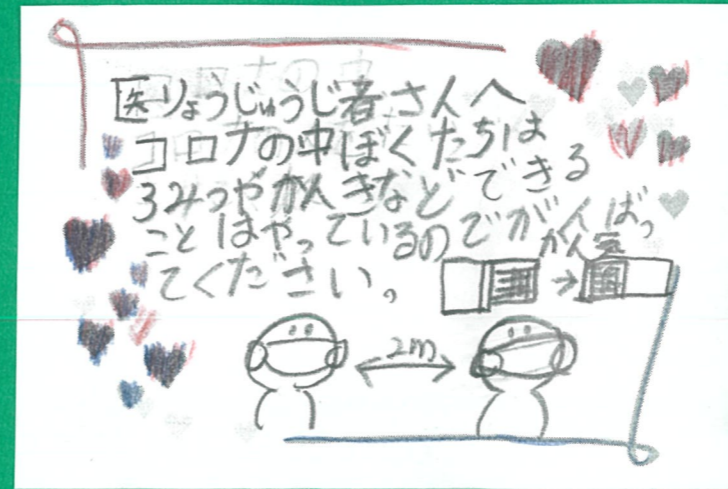 医りょうじゅうじ者さんへ
コロナの中ぼくたちは
3みつやかん気などできる
ことはやっているのでがんばっ
てください。
かん気
2m